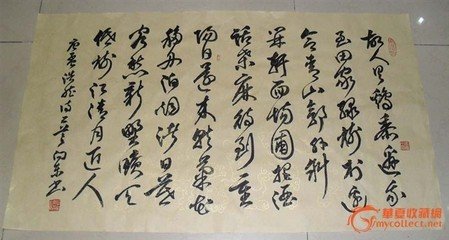 故人具鷄黍邀我
至田家綠樹村邊
合青山郭外斜
開軒面場圃把酒
話桑麻待到重
陽日還來就菊花
移舟泊煙渚日暮
客愁新野曠天
低樹江清月近人
唐孟浩然詩二首
華夏收藏網
mycollect.net